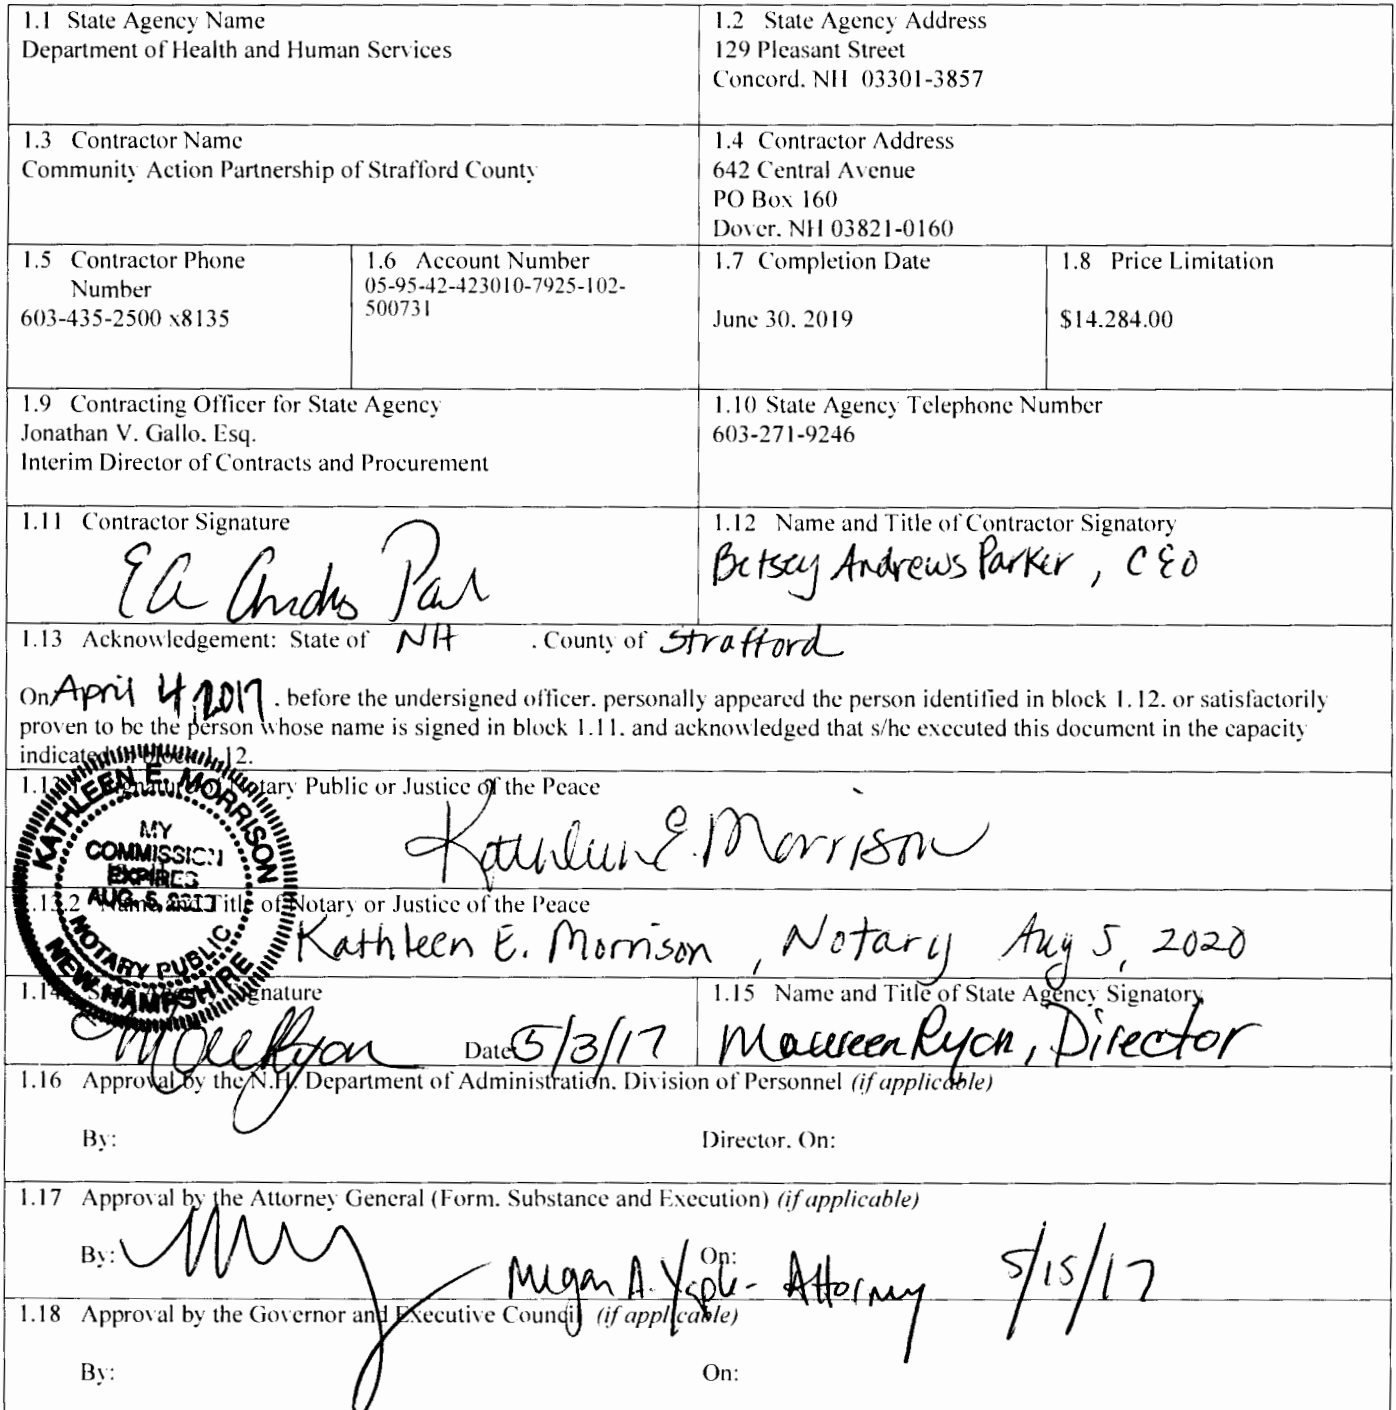 1.1 State Agency Name
Department of Health and Human Services
1.2 State Agency Address
129 Pleasant Street
Concord, NH 03301-3857
1.3 Contractor Name
Community Action Partnership of Strafford County
1.4 Contractor Address
642 Central Avenue
PO Box 160
Dover, NH 03821-0160
1.5 Contractor Phone
Number
603-435-2500 x8135
1.6 Account Number
05-95-42-423010-7925-102-
500731
1.7 Completion Date
June 30, 2019
1.8 Price Limitation
$14,284.00
1.9 Contracting Officer for State Agency
Jonathan V. Gallo, Esq.
Interim Director of Contracts and Procurement
1.10 State Agency Telephone Number
603-271-9246
1.11 Contractor Signature
1.12 Name and Title of Contractor Signatory
Betsey Andrews Parker, CEO
1.13 Acknowledgement: State of NH, County of Strafford
On April 4, 2017, before the undersigned officer, personally appeared the person identified in block 1.12, or satisfactorily
proven to be the person whose name is signed in block 1.11, and acknowledged that s/he executed this document in the capacity
indicated in block 1.12.
Signature of Notary Public or Justice of the Peace
Kathleen E. Morrison
KATHLEEN E. MORRISON
MY
COMMISSION
EXPIRES
AUG. 5,
NOTARY PUBLIC
NEW HAMPSHIRE
1.13.2 Name and Title of Notary or Justice of the Peace
Kathleen E. Morrison, Notary Aug 5, 2020
1.14 State Agency Signature
Date: 5/3/17
1.15 Name and Title of State Agency Signatory
Maureen Ryan, Director
1.16 Approval by the N.H. Department of Administration, Division of Personnel (if applicable)
By: Director, On:
1.17 Approval by the Attorney General (Form, Substance and Execution) (if applicable)
By: On:
Megan A. Yaple - Attorney 5/15/17
1.18 Approval by the Governor and Executive Council (if applicable)
By: On: